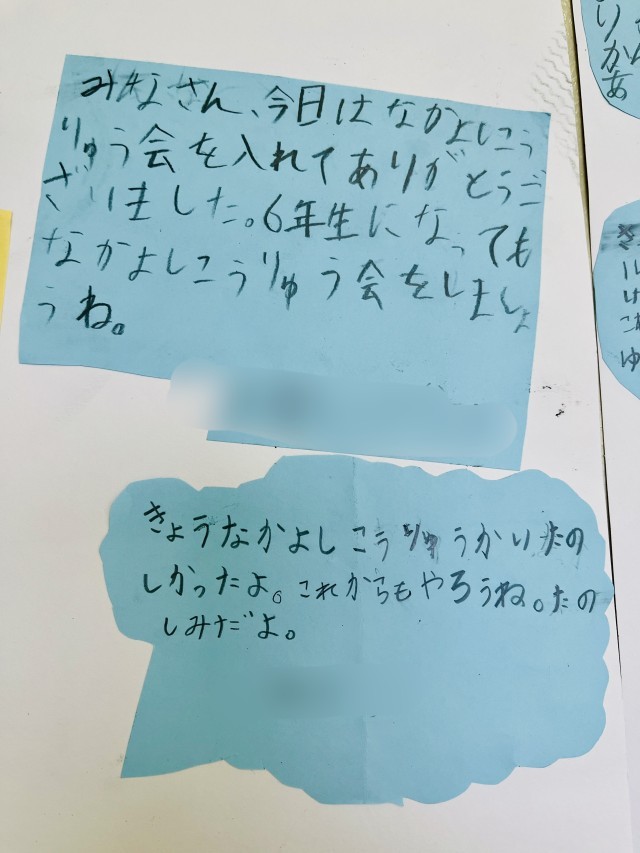 みなさん、今日はなかよしこう
りゅう会を入れてありがとうご
ざいました。6年生になっても
なかよしこうりゅう会をしましょ
うね。
きょうなかよしこうりゅうかいたの
しかったよ。これからもやろうね。たの
しみだよ。